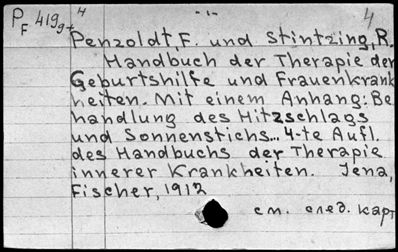 PF 419g-4 - 1 - 4
Penzoldt, F. und Stintzing, R.
Handbuch der Therapie der
Geburtshilfe und Frauenkrank
heiten. Mit einem Anhang: Be
handlung des Hitzschlags
und Sonnenstichs... 4-te Aufl.
des Handbuchs der Therapie
innerer Krankheiten. Jena,
Fischer, 1912
см. след. карт